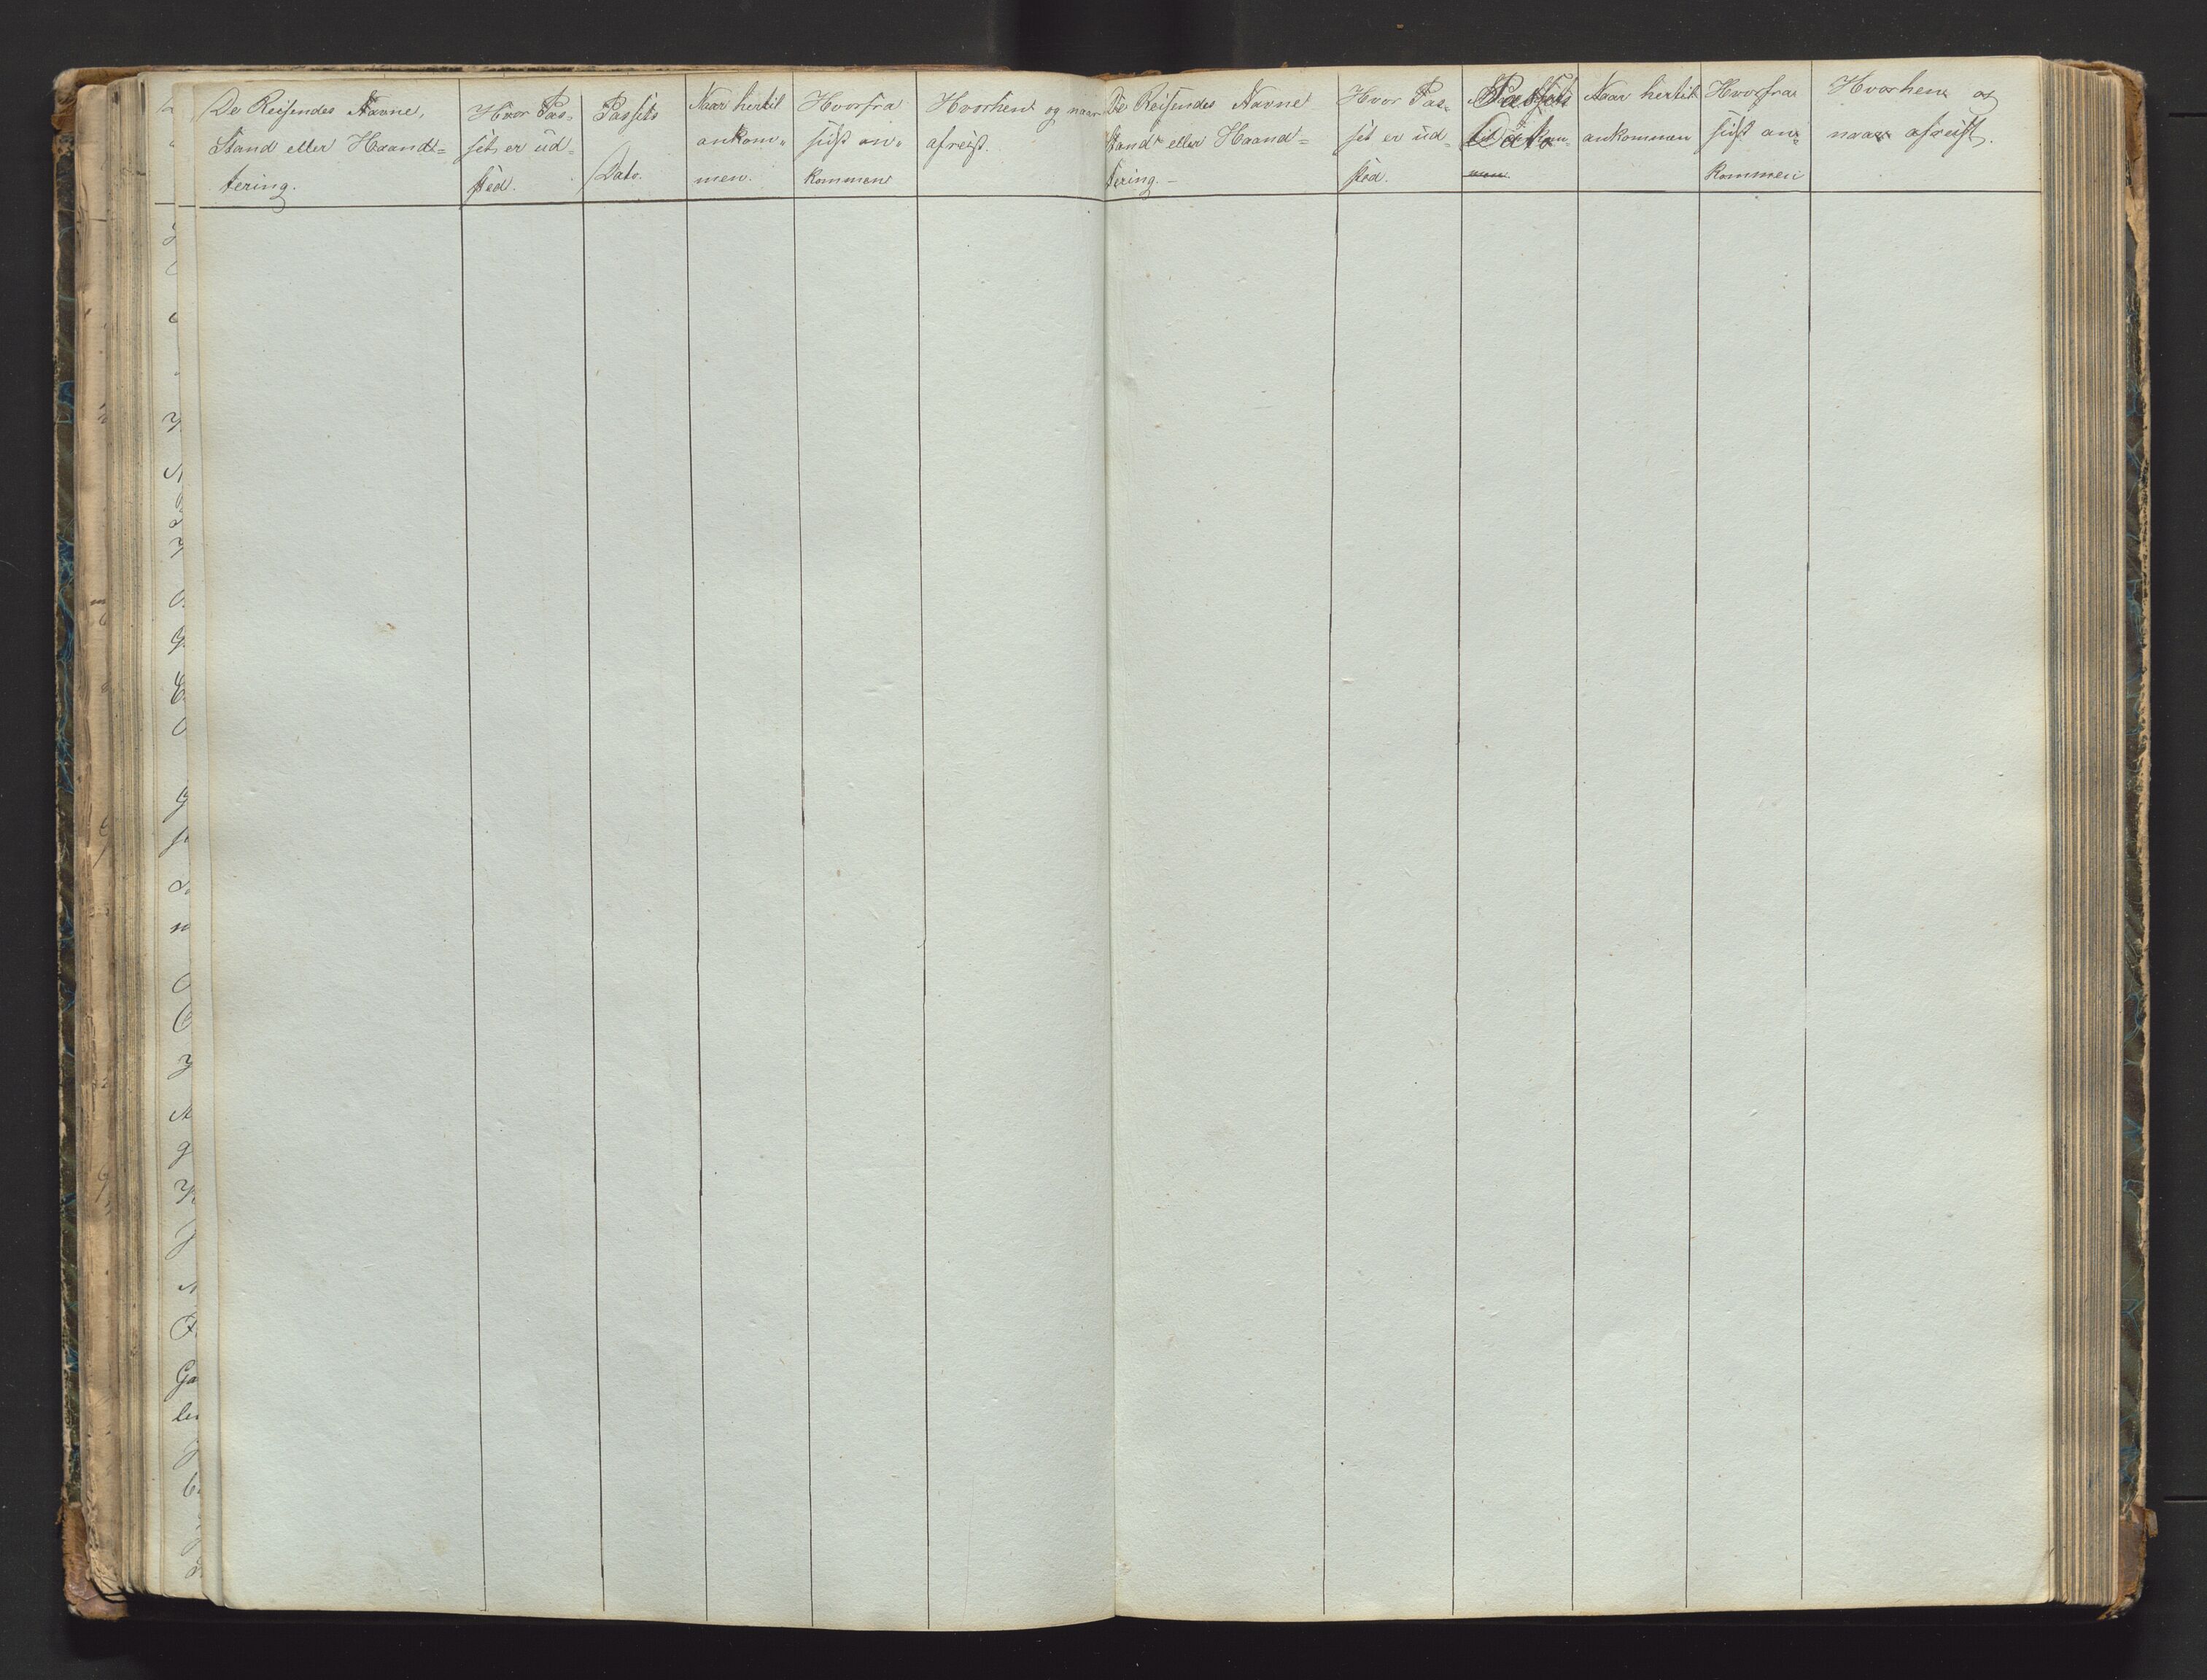 De Reisendes Navne,
Stand eller Haand=
tering.
Hvor Pas=
set er ud=
sted.
Passets
Dato.
Naar hertil
ankom=
men.
Hvorfra
sidst an=
kommen
Hvorhen og naar
afreist.
De Reisendes Navne
Stand eller Haand=
tering. –
Hvor Pas=
set er ud=
sted.
Passets
Dato
Naar hertil
ankommen
Hvorfra
sidst an=
kommen
Hvorhen og
naar afreist.